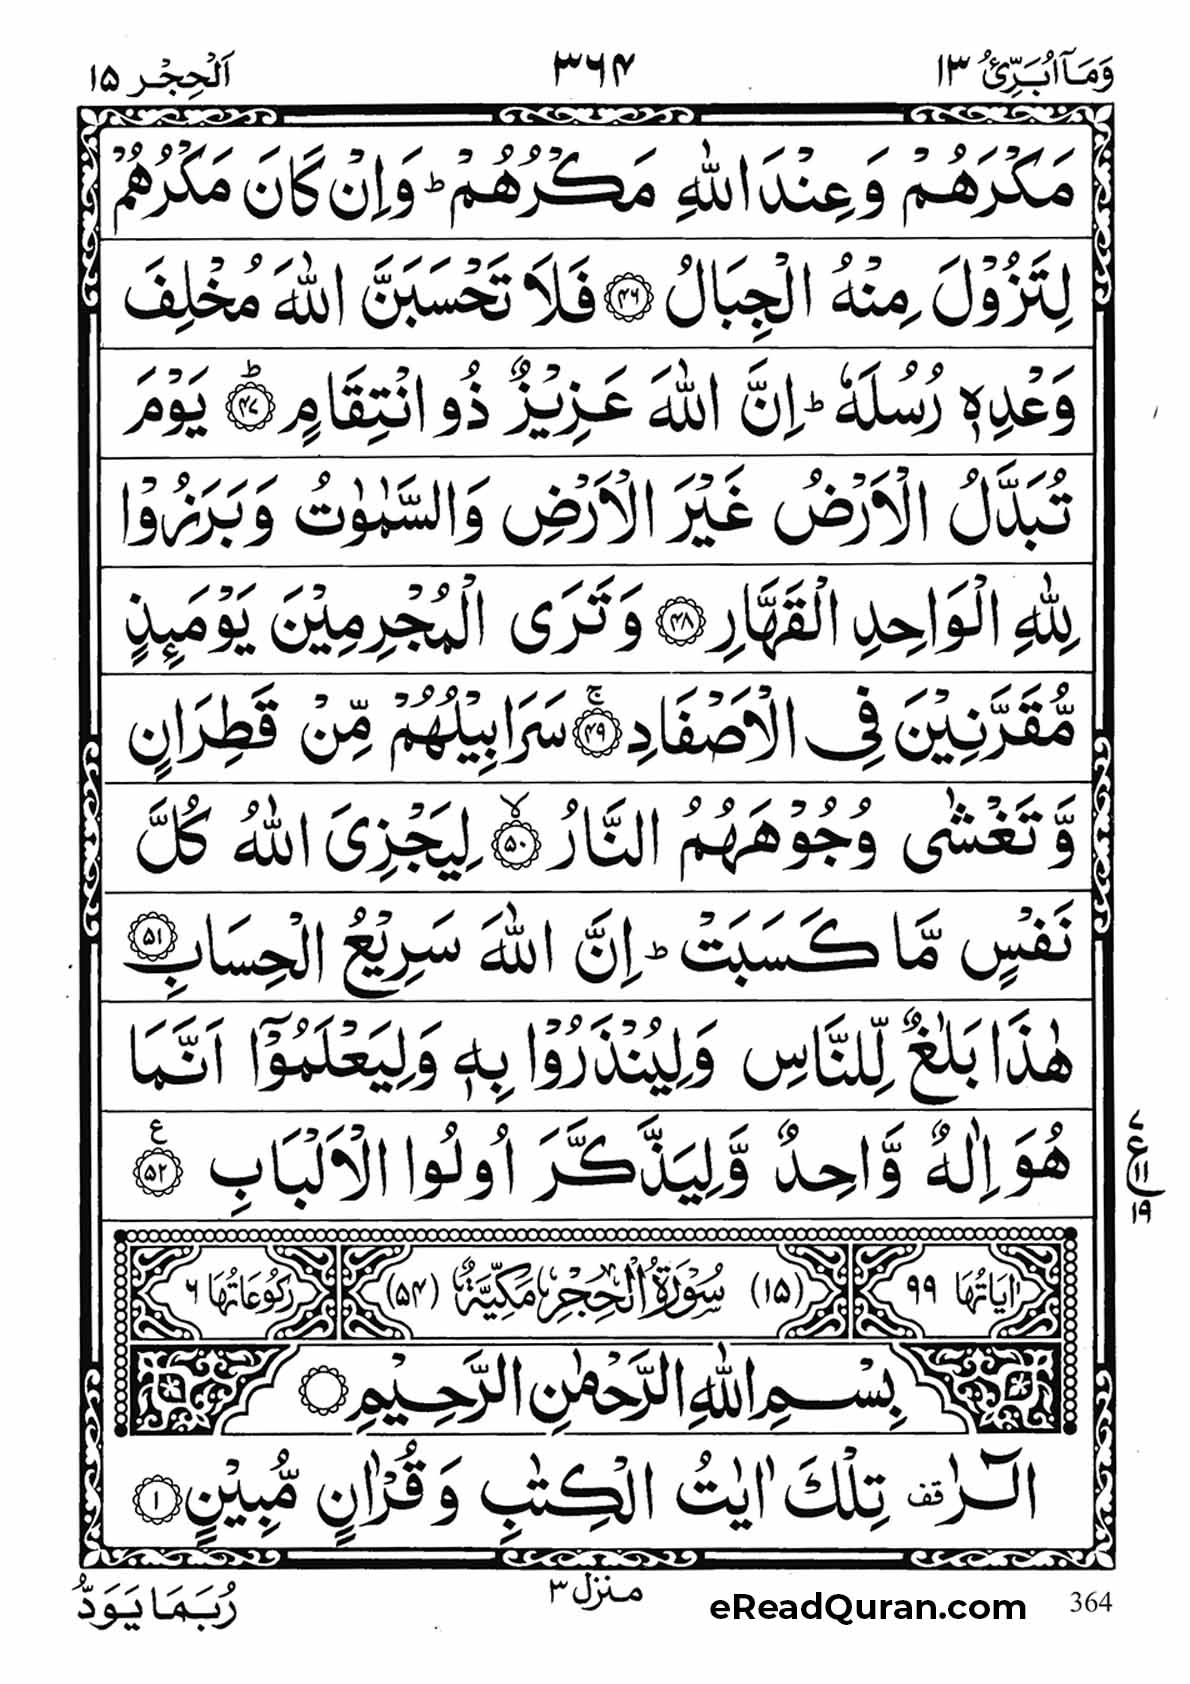 وَمَاۤ اُبَرِّئُ ١٣
٣٦٤
اَلْحِجْر ١٥
مَكْرَهُمْ وَعِنْدَ اللّٰهِ مَكْرُهُمْ ؕ وَاِنْ كَانَ مَكْرُهُمْ
لِتَزُوْلَ مِنْهُ الْجِبَالُ ﴿٤٦﴾ فَلَا تَحْسَبَنَّ اللّٰهَ مُخْلِفَ
وَعْدِهٖ رُسُلَهٗ ؕ اِنَّ اللّٰهَ عَزِيْزٌ ذُو انْتِقَامٍ ؕ﴿٤٧﴾ يَوْمَ
تُبَدَّلُ الْاَرْضُ غَيْرَ الْاَرْضِ وَالسَّمٰوٰتُ وَبَرَزُوْا
لِلّٰهِ الْوَاحِدِ الْقَهَّارِ ﴿٤٨﴾ وَتَرَى الْمُجْرِمِيْنَ يَوْمَىِٕذٍ
مُّقَرَّنِيْنَ فِى الْاَصْفَادِ ۚ﴿٤٩﴾ سَرَابِيْلُهُمْ مِّنْ قَطِرَانٍ
وَّتَغْشٰى وُجُوْهَهُمُ النَّارُ ۙ﴿٥٠﴾ لِيَجْزِىَ اللّٰهُ كُلَّ
نَفْسٍ مَّا كَسَبَتْ ؕ اِنَّ اللّٰهَ سَرِيْعُ الْحِسَابِ ﴿٥١﴾
هٰذَا بَلٰغٌ لِّلنَّاسِ وَلِيُنْذَرُوْا بِهٖ وَلِيَعْلَمُوْۤا اَنَّمَا
هُوَ اِلٰهٌ وَّاحِدٌ وَّلِيَذَّكَّرَ اُولُوا الْاَلْبَابِ ﴿٥٢﴾ ع
٧ ع ١١ ١٩
اٰيَاتُهَا ٩٩ (١٥) سُوْرَةُ الْحِجْرِ مَكِّيَّةٌ (٥٤) رُكُوْعَاتُهَا ٦
بِسْمِ اللّٰهِ الرَّحْمٰنِ الرَّحِيْمِ
الٓرٰ قف تِلْكَ اٰيٰتُ الْكِتٰبِ وَقُرْاٰنٍ مُّبِيْنٍ ﴿١﴾
رُبَمَا يَوَدُّ
منزل ٣
eReadQuran.com
364